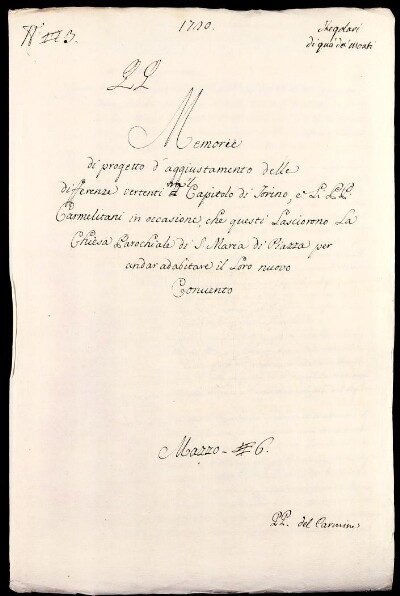 N.° 3.
1720.
Regolari
di quà dei Monti
Memorie
di progetto d'aggiustamento delle
differenze vertenti tra il Capitolo di Torino, e Li PP.
Carmelitani in occasione, che questi Lasciorono La
Chiesa Parochiale di S. Maria di Piazza per
andar adabitare il Loro nuovo
Convento
Mazzo - 6.
PP. del Carmine